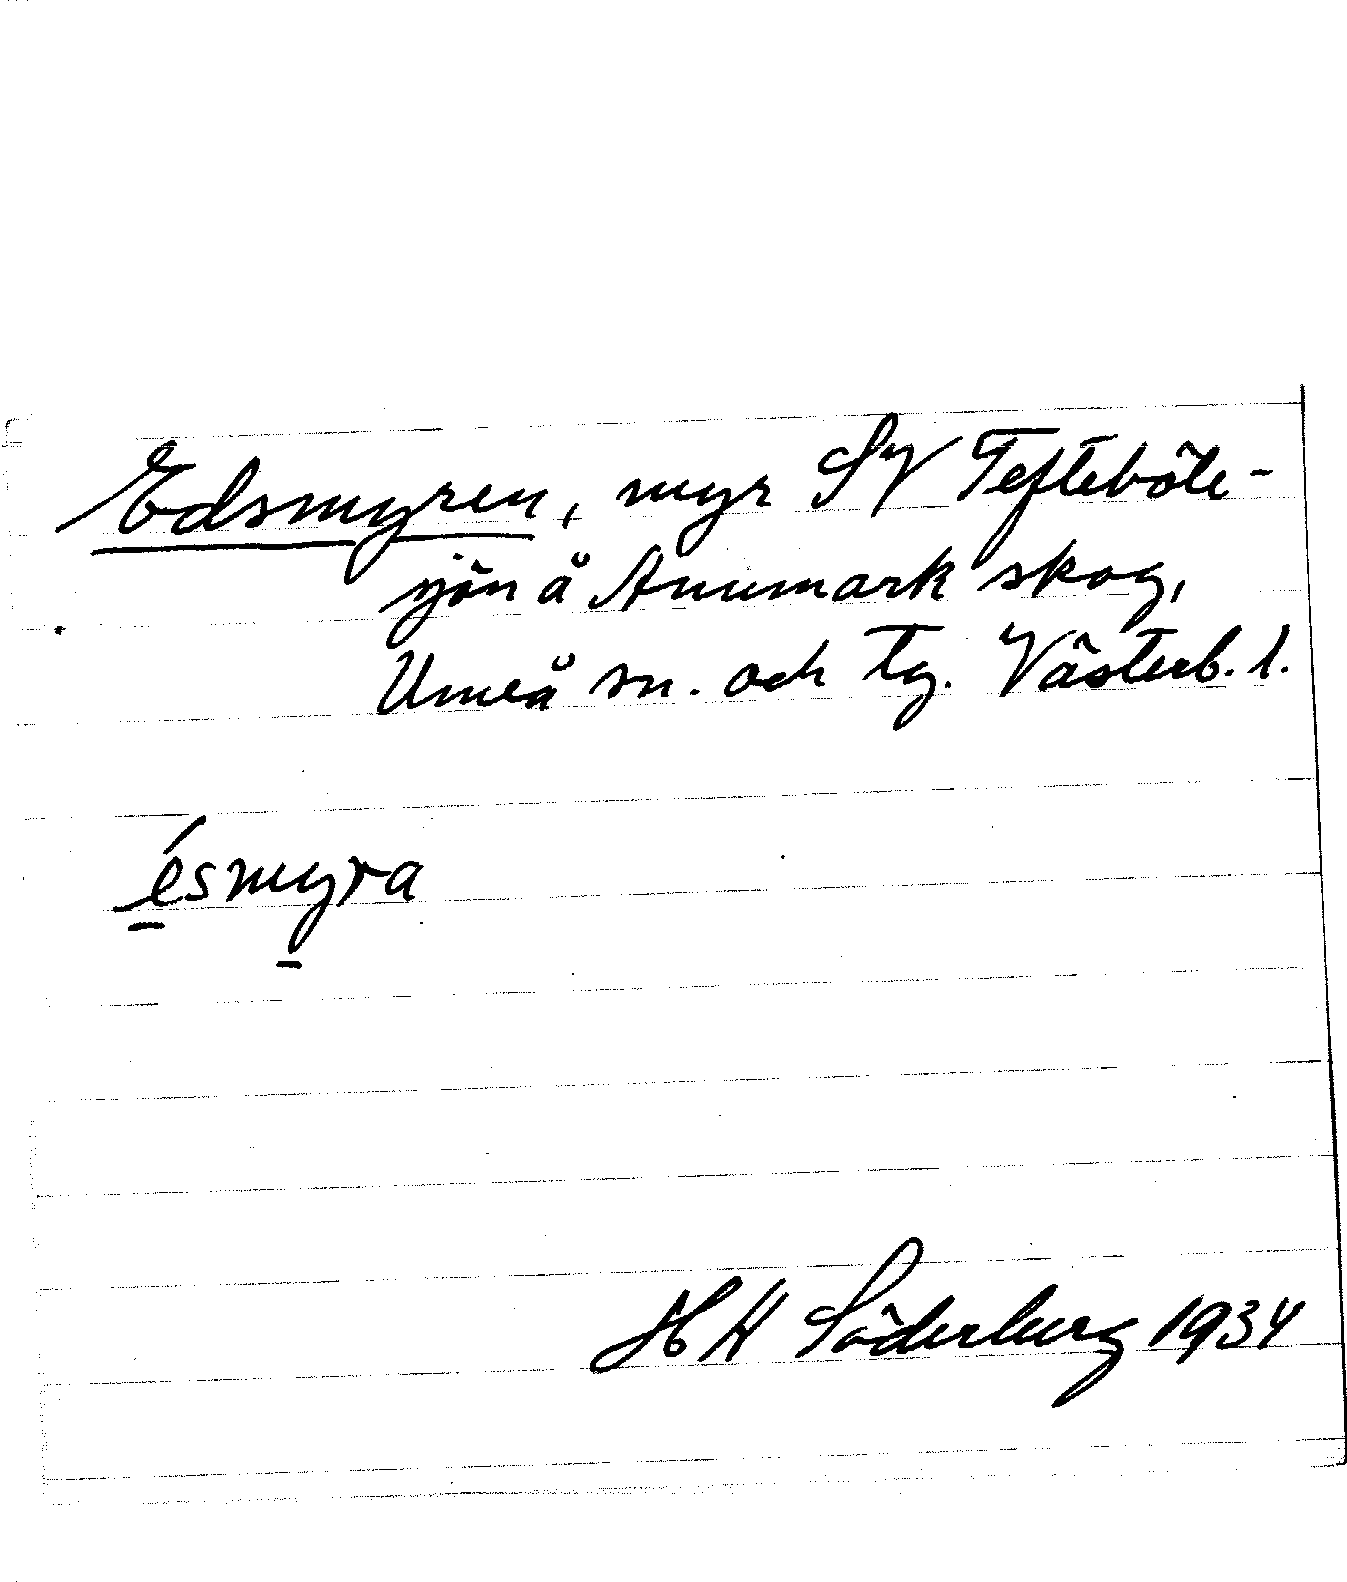 Edsmyren, myr SV Tefteböle-
sjön å Anumark skog,
Umeå sn. och tg. Västerb. l.
ésmyra
H H Söderberg 1934